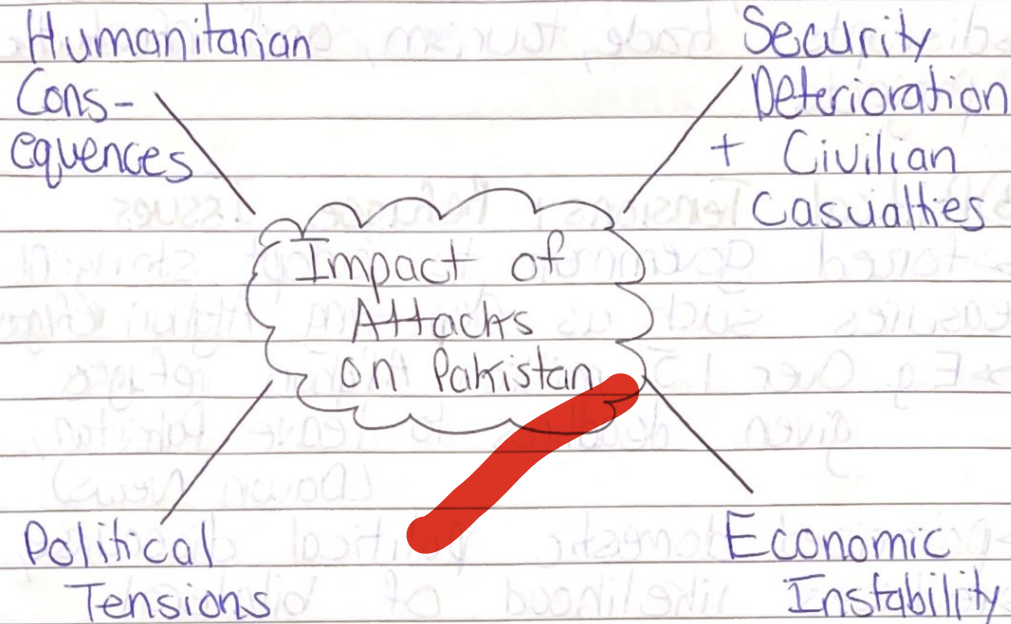 Humanitarian
Cons-
equences
Security
Deterioration
+ Civilian
Casualties
Impact of
Attacks
on Pakistan
Political
Tensions
Economic
Instability